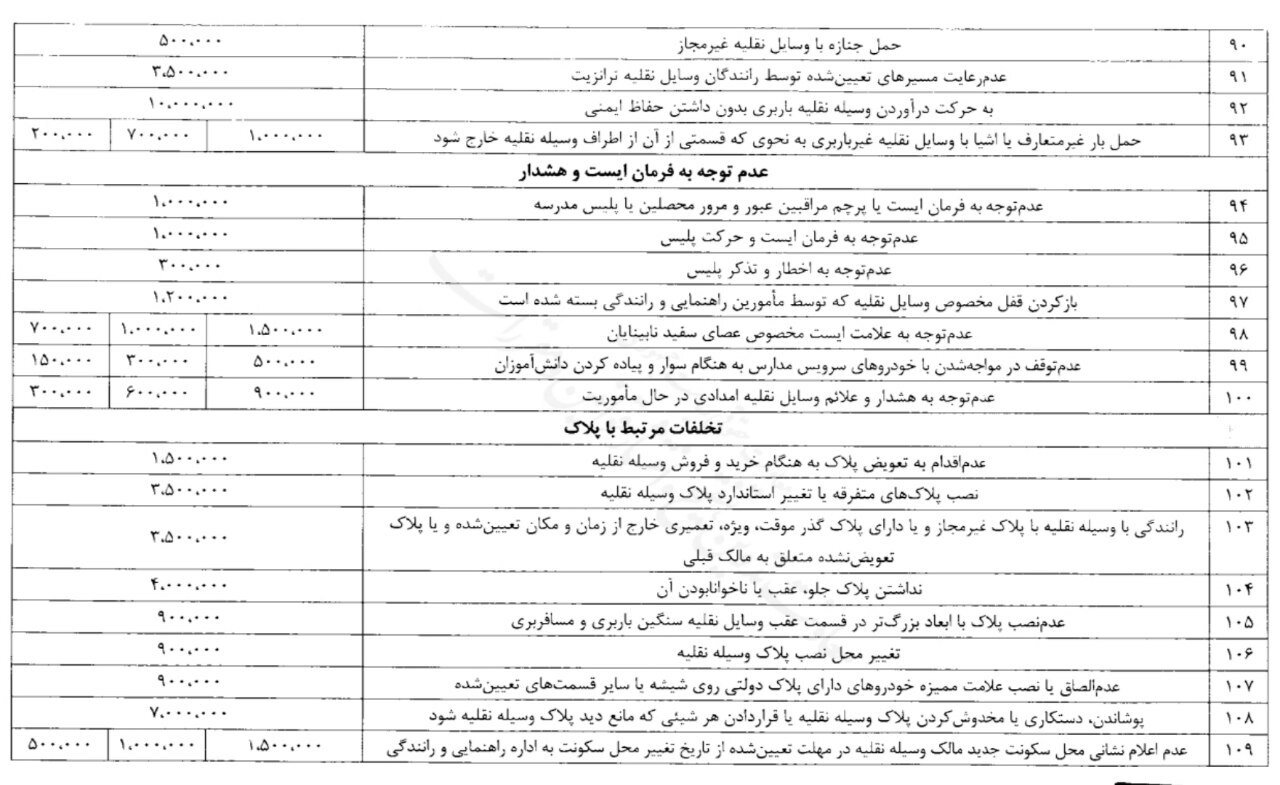 ۹۰ حمل جنازه با وسایل نقلیه غیرمجاز ۵۰۰،۰۰۰
۹۱ عدم‌رعایت مسیرهای تعیین‌شده توسط رانندگان وسایل نقلیه ترانزیت ۳،۵۰۰،۰۰۰
۹۲ به حرکت درآوردن وسیله نقلیه باربری بدون داشتن حفاظ ایمنی ۱۰،۰۰۰،۰۰۰
۹۳ حمل بار غیرمتعارف یا اشیا با وسایل نقلیه غیرباربری به نحوی که قسمتی از آن از اطراف وسیله نقلیه خارج شود ۱،۰۰۰،۰۰۰ ۷۰۰،۰۰۰ ۲۰۰،۰۰۰
عدم توجه به فرمان ایست و هشدار
۹۴ عدم‌توجه به فرمان ایست یا پرچم مراقبین عبور و مرور محصلین یا پلیس مدرسه ۱،۰۰۰،۰۰۰
۹۵ عدم‌توجه به فرمان ایست و حرکت پلیس ۱،۰۰۰،۰۰۰
۹۶ عدم‌توجه به اخطار و تذکر پلیس ۳۰۰،۰۰۰
۹۷ بازکردن قفل مخصوص وسایل نقلیه که توسط مأمورین راهنمایی و رانندگی بسته شده است ۱،۲۰۰،۰۰۰
۹۸ عدم‌توجه به علامت ایست مخصوص عصای سفید نابینایان ۱،۵۰۰،۰۰۰ ۱،۰۰۰،۰۰۰ ۷۰۰،۰۰۰
۹۹ عدم‌توقف در مواجه‌شدن با خودروهای سرویس مدارس به هنگام سوار و پیاده کردن دانش‌آموزان ۵۰۰،۰۰۰ ۳۰۰،۰۰۰ ۱۵۰،۰۰۰
۱۰۰ عدم‌توجه به هشدار و علائم وسایل نقلیه امدادی در حال مأموریت ۹۰۰،۰۰۰ ۶۰۰،۰۰۰ ۳۰۰،۰۰۰
تخلفات مرتبط با پلاک
۱۰۱ عدم‌اقدام به تعویض پلاک به هنگام خرید و فروش وسیله نقلیه ۱،۵۰۰،۰۰۰
۱۰۲ نصب پلاک‌های متفرقه یا تغییر استاندارد پلاک وسیله نقلیه ۳،۵۰۰،۰۰۰
۱۰۳ رانندگی با وسیله نقلیه با پلاک غیرمجاز و یا دارای پلاک گذر موقت، ویژه، تعمیری خارج از زمان و مکان تعیین‌شده و یا پلاک
تعویض‌نشده متعلق به مالک قبلی ۳،۵۰۰،۰۰۰
۱۰۴ نداشتن پلاک جلو، عقب یا ناخوانابودن آن ۴،۰۰۰،۰۰۰
۱۰۵ عدم‌نصب پلاک با ابعاد بزرگ‌تر در قسمت عقب وسایل نقلیه سنگین باربری و مسافربری ۹۰۰،۰۰۰
۱۰۶ تغییر محل نصب پلاک وسیله نقلیه ۹۰۰،۰۰۰
۱۰۷ عدم‌الصاق یا نصب علامت ممیزه خودروهای دارای پلاک دولتی روی شیشه یا سایر قسمت‌های تعیین‌شده ۹۰۰،۰۰۰
۱۰۸ پوشاندن، دستکاری یا مخدوش‌کردن پلاک وسیله نقلیه یا قراردادن هر شیئی که مانع دید پلاک وسیله نقلیه شود ۷،۰۰۰،۰۰۰
۱۰۹ عدم اعلام نشانی محل سکونت جدید مالک وسیله نقلیه در مهلت تعیین‌شده از تاریخ تغییر محل سکونت به اداره راهنمایی و رانندگی ۱،۵۰۰،۰۰۰ ۱،۰۰۰،۰۰۰ ۵۰۰،۰۰۰